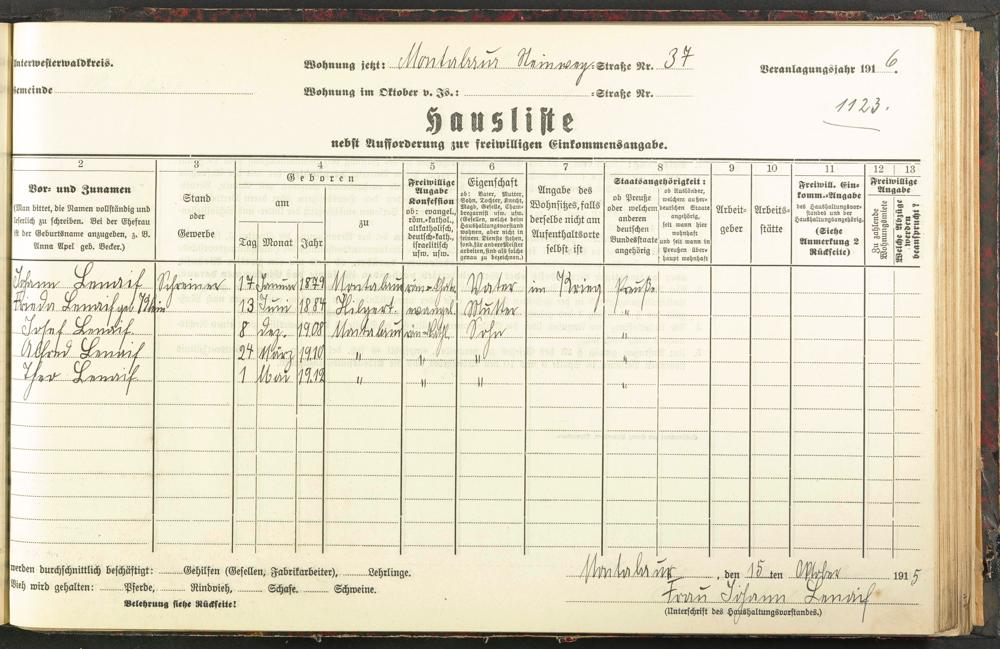 Unterwesterwaldkreis.
Wohnung jetzt: Montabaur Steinweg-Straße Nr. 37
Veranlagungsjahr 1916.
Gemeinde
Wohnung im Oktober v. Js.: -Straße Nr.
1123.
Hausliste
nebst Aufforderung zur freiwilligen Einkommensangabe.
2 3 4 5 6 7 8 9 10 11 12 13
Vor- und Zunamen
(Man bittet, die Namen vollständig und
leserlich zu schreiben. Bei der Ehefrau
ist der Geburtsname anzugeben, z. B.
Anna Apel geb. Becker.)
Stand
oder
Gewerbe
Geboren
am
zu
Tag Monat Jahr
Freiwillige
Angabe
Konfession
ob: evangel.,
röm.-kathol.,
altkatholisch,
deutsch-kath.,
israelitisch
usw. usw.
Eigenschaft
ob: Vater, Mutter,
Sohn, Tochter, Knecht,
Magd, Geselle,
Angabe des
Wohnsitzes, falls
derselbe nicht am
Aufenthaltsorte
selbst ist
Staatsangehörigkeit:
ob Preuße
oder welchem
anderen
deutschen
Bundesstaate
angehörig
ob Ausländer,
welchem außer-
deutschen Staate
angehörig,
seit wann hier
wohnhaft
und seit wann in
Preußen über-
haupt wohnhaft
Arbeit-
geber
Arbeits-
stätte
Freiwill. Ein-
komm.-Angabe
des Haushaltungsvor-
standes und der
Haushaltungsangehörig.
(Siehe
Anmerkung 2
Rückseite)
Freiwillige
Angabe
Zu zahlende
Wohnungsmiete
Welche Abzüge
werden
beansprucht?
Johann Lenaif Schreiner 17 Januar 1879 Montabaur röm-kath. Vater im Krieg Preuße
Frieda Lenaif geb. Klein 13 Juni 1884 Hilgert. evangel. Mutter "
Josef Lenaif 8 Dez. 1908 Montabaur röm-kath. Sohn "
Alfred Lenaif 24 März 1910 " " " "
Theo Lenaif 1 Mai 1912 " " " "
werden durchschnittlich beschäftigt: Gehilfen (Gesellen, Fabrikarbeiter), Lehrlinge.
Vieh wird gehalten: Pferde, Rindvieh, Schafe. Schweine.
Belehrung siehe Rückseite!
Montabaur, den 15 ten Oktober 1915
Frau Johann Lenaif
(Unterschrift des Haushaltungsvorstandes.)